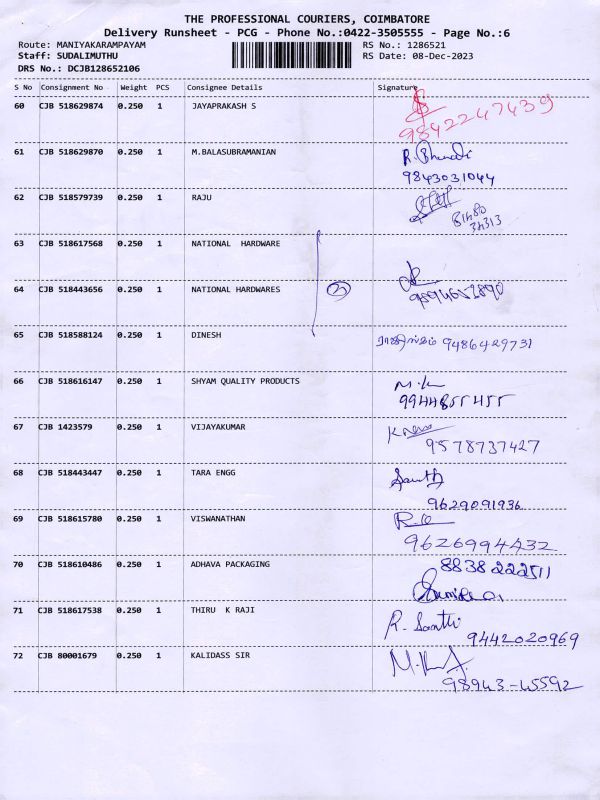 THE PROFESSIONAL COURIERS, COIMBATORE
Delivery Runsheet - PCG - Phone No.:0422-3505555 - Page No.:6
Route: MANIYAKARAMPAYAM RS No.: 1286521
Staff: SUDALIMUTHU RS Date: 08-Dec-2023
DRS No.: DCJB128652106
S No Consignment No Weight PCS Consignee Details Signature
60 CJB 518629874 0.250 1 JAYAPRAKASH S
9842247439
61 CJB 518629870 0.250 1 M.BALASUBRAMANIAN R. Bharathi
9843031044
62 CJB 518579739 0.250 1 RAJU
81480
34313
63 CJB 518617568 0.250 1 NATIONAL HARDWARE
64 CJB 518443656 0.250 1 NATIONAL HARDWARES 2
65 CJB 518588124 0.250 1 DINESH 9486429731
66 CJB 518616147 0.250 1 SHYAM QUALITY PRODUCTS
9944855455
67 CJB 1423579 0.250 1 VIJAYAKUMAR
9578737427
68 CJB 518443447 0.250 1 TARA ENGG
9629091936
69 CJB 518615780 0.250 1 VISWANATHAN
9626994432
70 CJB 518610486 0.250 1 ADHAVA PACKAGING 8838222511
71 CJB 518617538 0.250 1 THIRU K RAJI R. Santhi
9442020969
72 CJB 80001679 0.250 1 KALIDASS SIR
98943-45592